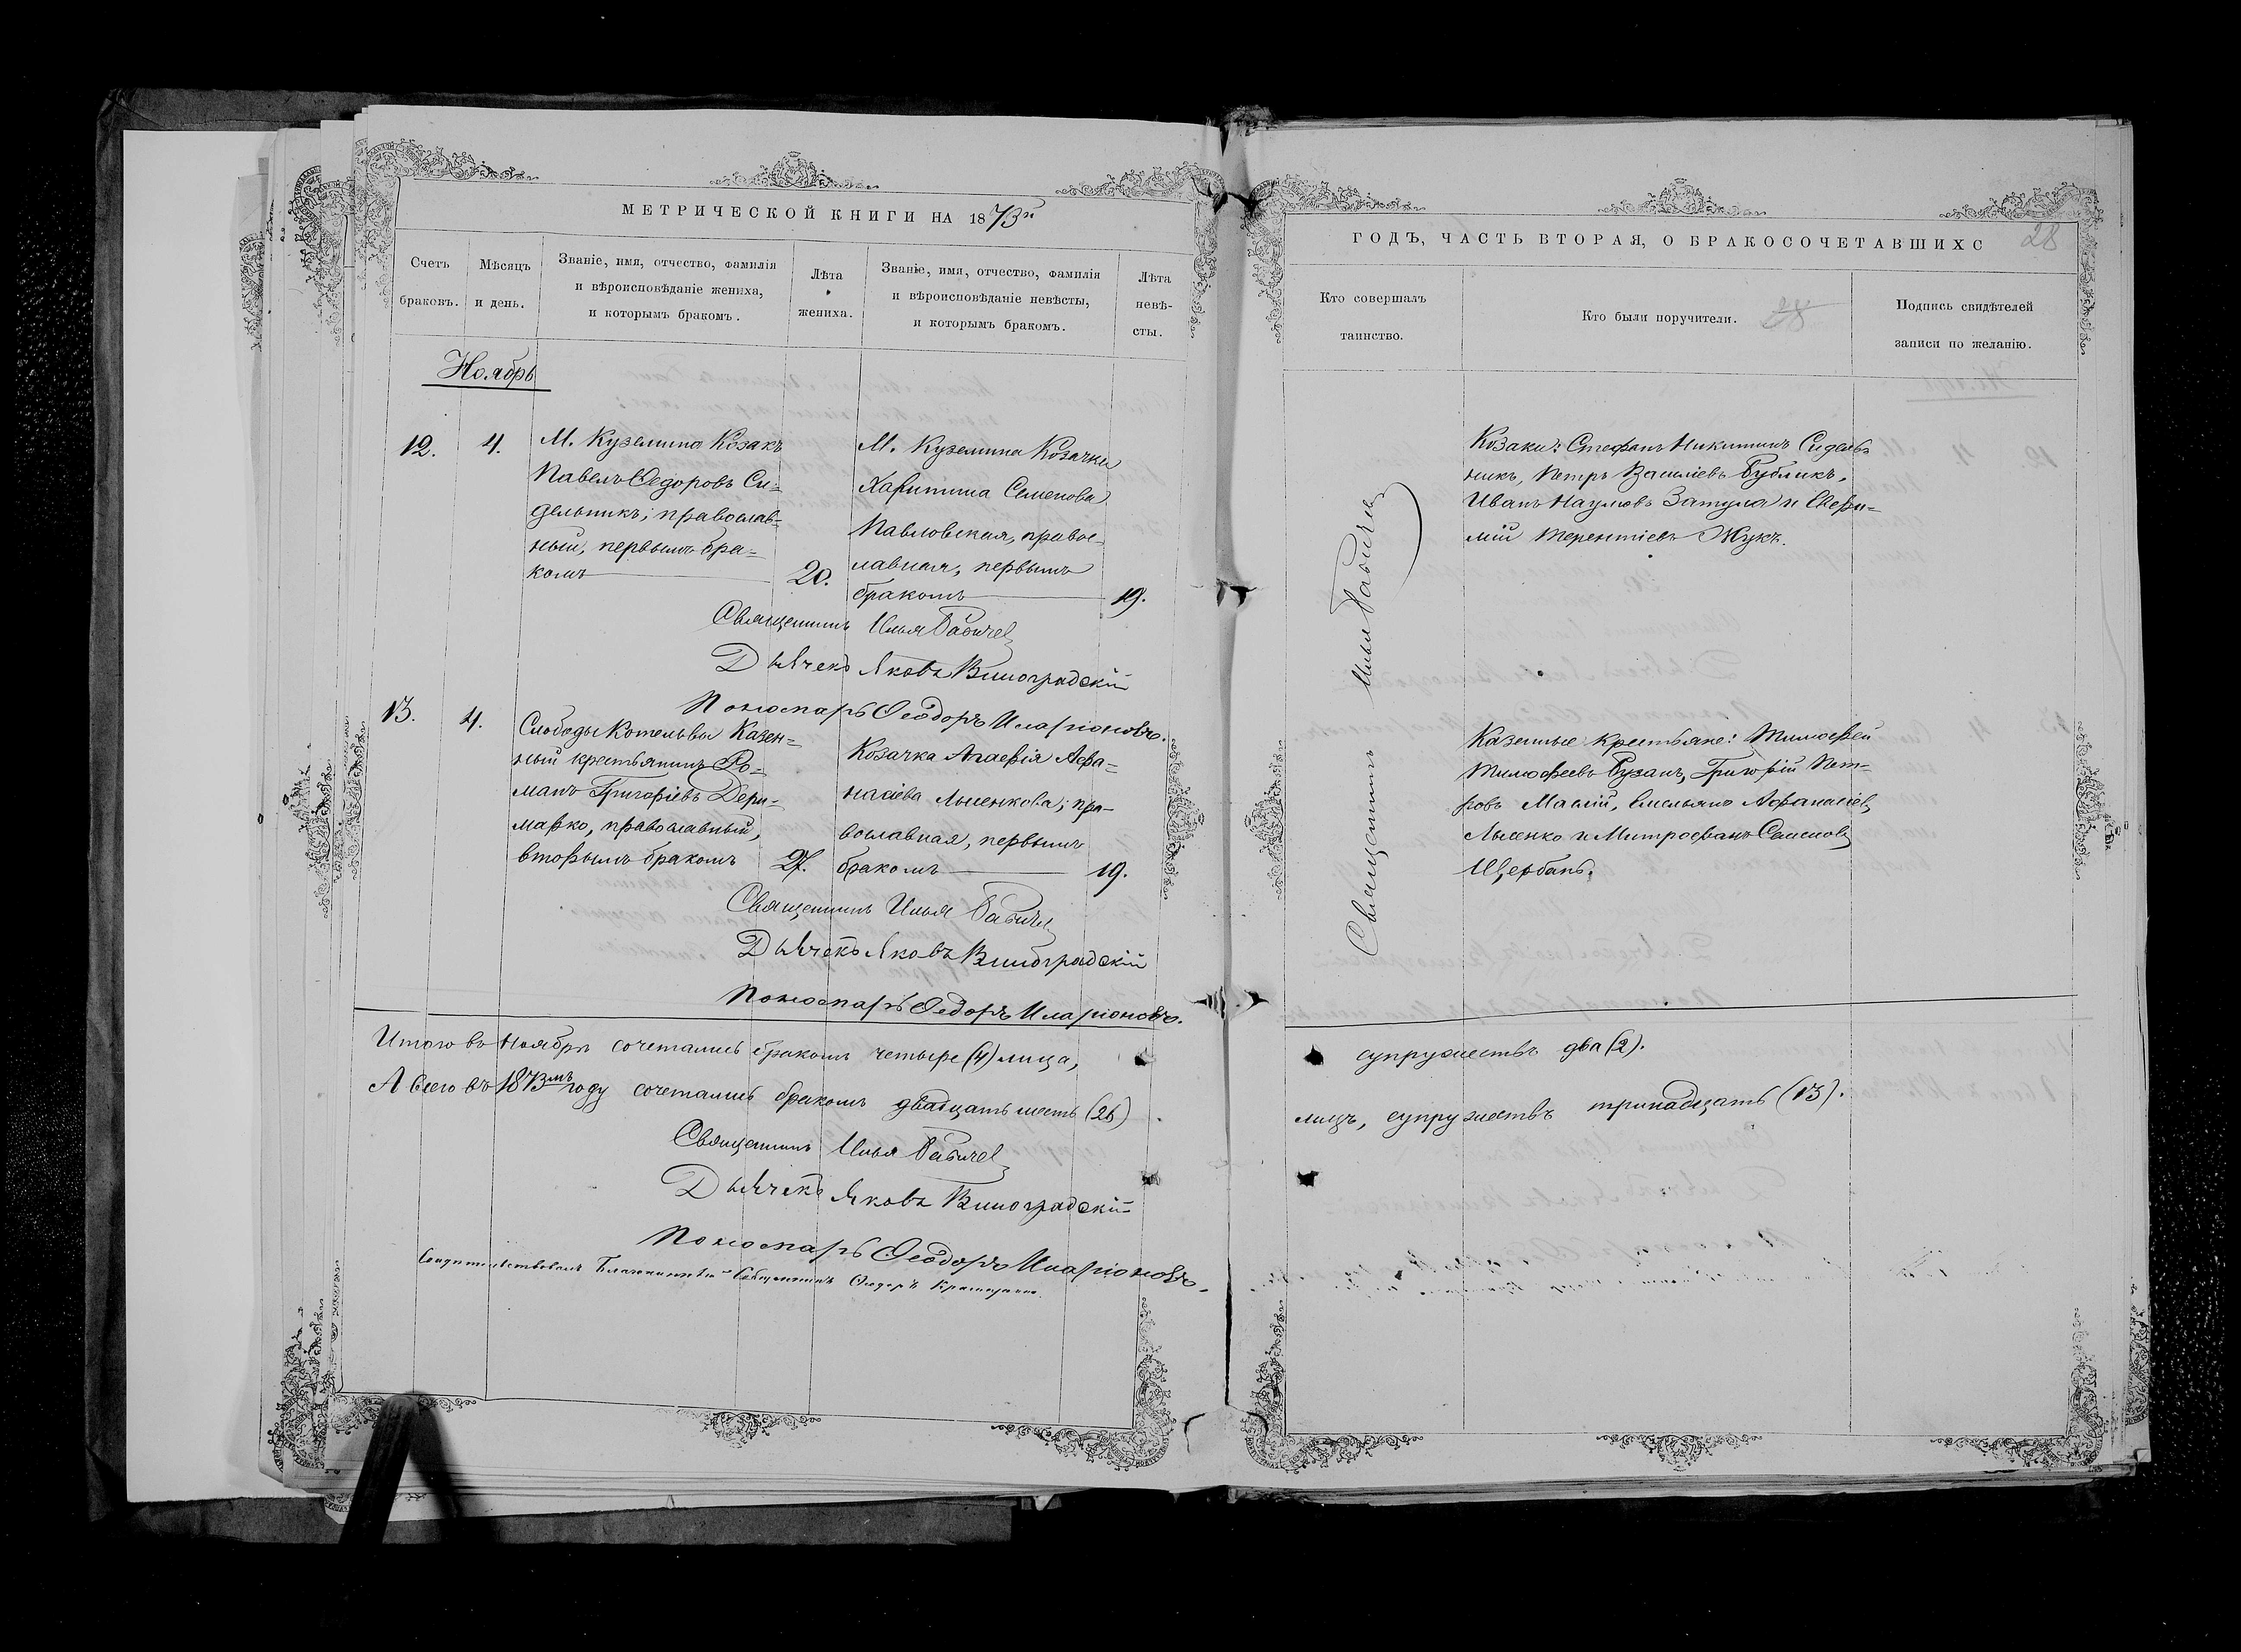 МЕТРИЧЕСКОЙ КНИГИ НА 1873й
Счетъ браковъ.
Мѣсяцъ и день.
Званіе, имя, отчество, фамилія и вѣроисповѣданіе жениха, и которымъ бракомъ.
Лѣта жениха.
Званіе, имя, отчество, фамилія и вѣроисповѣданіе невѣсты, и которымъ бракомъ.
Лѣта невѣ-сты.
Ноябрь
12.
4.
М. Куземина Козакъ
Павелъ Ѳедоровъ Си=
дельникъ; православ=
ный, первымъ бра=
комъ
20.
М. Куземина Козачка
Харитина Семенова
Павловская, правос-
лавная, первымъ
бракомъ
19.
Священникъ Илья Бабичев
Дьячекъ Яковъ Виноградскій
Пономарь Ѳеодоръ Иларіоновъ.
13.
4.
Слободы Котельвы Казен=
ный крестьянинъ Ро=
манъ Григоріевъ Дери=
марко, православный,
вторымъ бракомъ
27.
Козачка Агафія Афа=
насіева Лысенкова; пра-
вославная, первымъ
бракомъ
19.
Священникъ Илья Бабичев
Дьячекъ Яковъ Виноградскій
Пономарь Ѳедоръ Иларіоновъ.
Итого въ Ноябрѣ сочетались бракомъ четыре (4) лица,
А всего въ 1873мъ году сочетались бракомъ двадцать шесть (26)
Священникъ Илья Бабичев
Дьячекъ Яковъ Виноградскій
Пономарь Ѳеодоръ Иларіоновъ.
Свидѣтельствовалъ Благочинный Священникъ Ѳедоръ
ГОДЪ, ЧАСТЬ ВТОРАЯ, О БРАКОСОЧЕТАВШИХС
28
Кто совершалъ таинство.
Кто были поручители.
28
Подпись свидѣтелей записи по желанію.
Священникъ Илья Бабичев
Козаки: Стефанъ Никитинъ Сидель
никъ, Петръ Василіевъ Бубликъ,
Иванъ Наумовъ Затула и Ефи=
мій Терентіевъ Жукъ.
Казенные крестьяне: Тимофей
Тимофеевъ Бузанъ, Григорій Пет=
ровъ Маслій, Емельянъ Афанасіев
Лысенко и Митрофанъ Семенов
Щербань.
супружествъ два (2).
лицъ, супружествъ тринадцать (13).